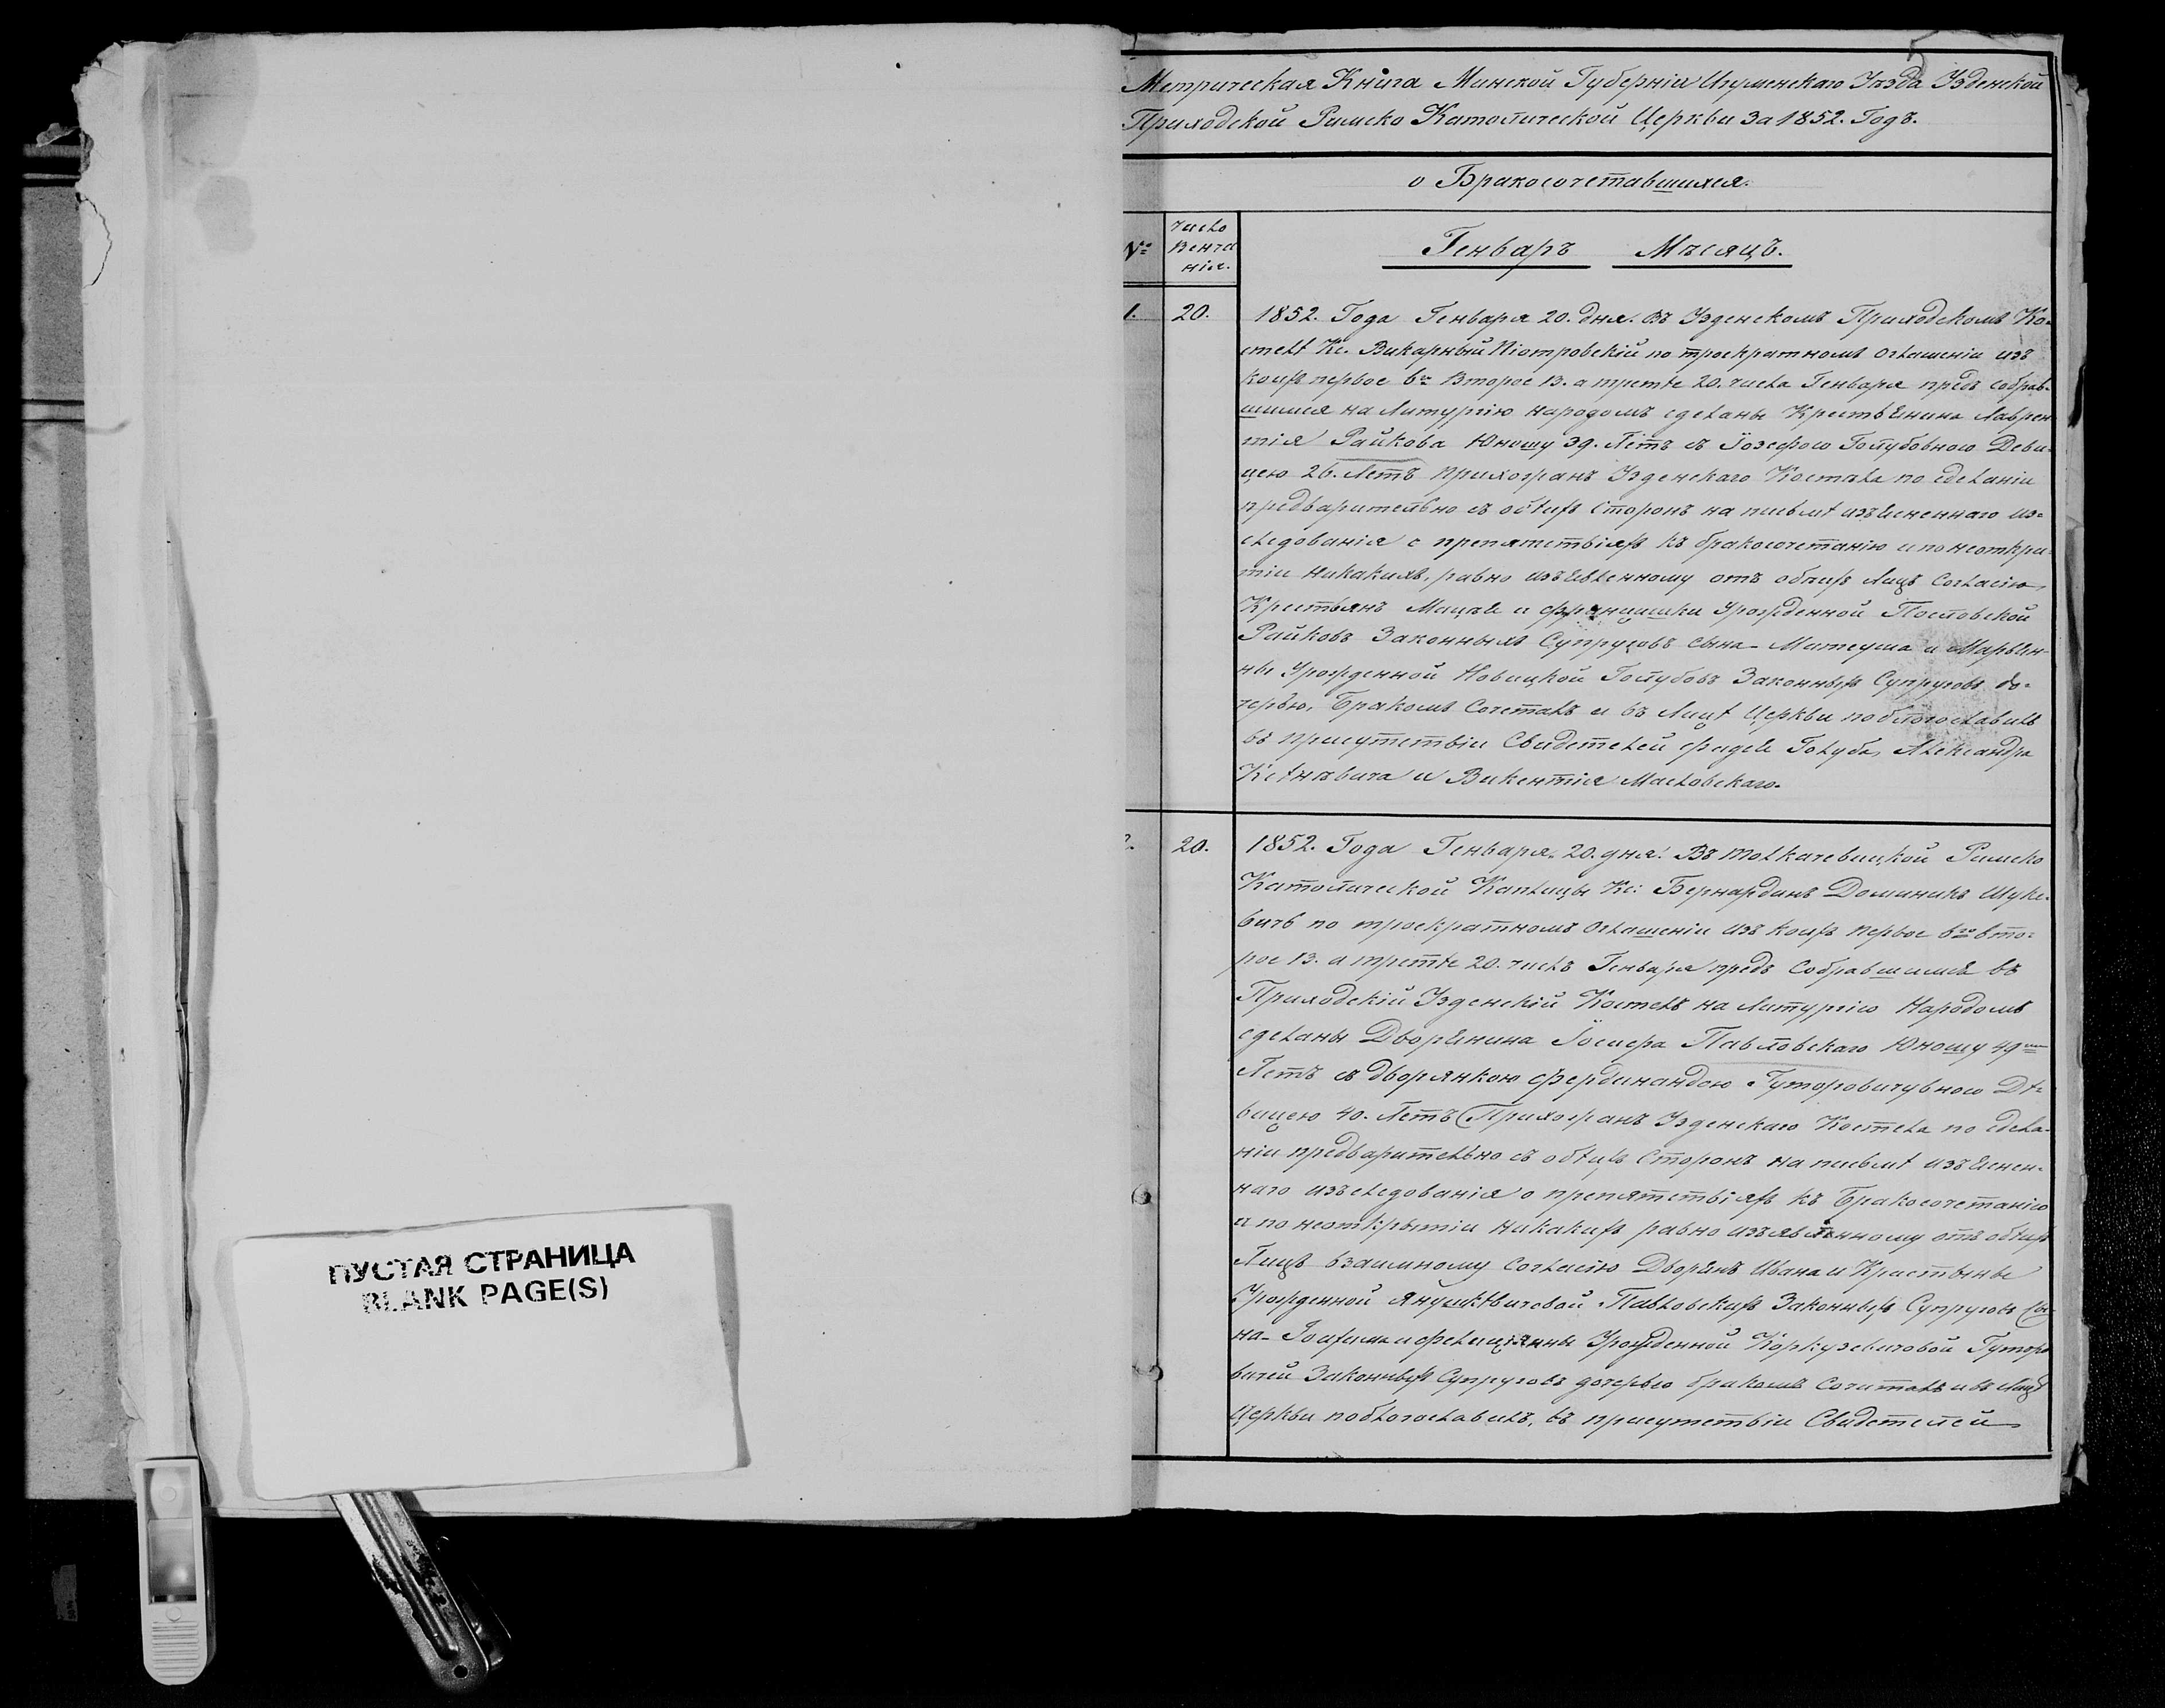 Метрическая Книга Минской Губерніи Игуменскаго Уѣзда Узденской
Приходской Римско Католической Церкви За 1852. Годъ.
о Бракосочетавшихся.
№
число
Венча
нія.
Генварь Мѣсяцъ.
1. 20. 1852. Года Генваря 20. дня. Въ Узденскомъ Приходскомъ Ко-
стелѣ Кс. Викарный Піотровскій по троекратномъ оглашеніи изъ
коихъ первое 6го Второе 13. а третѣе 20. числа Генваря предъ собрав-
шимся на Литургію народомъ сдѣланы Крестьянина Лаврен
тія Райкова Юношу 39. Лѣтъ съ Іозефою Голубовною Деви-
цею 26. Летъ прихожанъ Узденскаго Костела по сделаніи
предварительно съ обѣихъ сторонъ на письмѣ изъясненнаго из-
следованія о препятствіяхъ къ бракосочетанію и по неоткры-
тіи никакихъ, равно изъявленному отъ обѣихъ Лицъ Согласію,
Крестьянъ Мацѣя и Францишки Урожденной Пословской
Райковъ Законныхъ Супруговъ Сына Матеуша и Марьян-
ны Урожденной Новицкой Голубовъ Законныхъ Супруговъ до-
черью, Бракомъ Сочеталъ и въ Лицѣ Церкви поблагославилъ
въ присутствіи Свидетелей Фадея Голуба, Александра
и Викентія Масловскаго.
2. 20. 1852. Года Генваря. 20. дня. Въ Толкачевицкой Римско
Католической Каплицы Кс: Бернардинъ Доминикъ Шуке-
вичъ по троекратномъ Оглашеніи изъ коихъ первое 6го вто-
рое 13. а третѣе 20. числъ Генваря предъ Собравшимся въ
Приходскій Узденскій Костелъ на Литургію Народомъ
сделаны Дворянина Іосифа Павловскаго Юношу 49
Летъ съ дворянкою Фердинандою Гуторовичувною Дѣ-
вицею 40. Летъ Прихожанъ Узденскаго Костела по сдела-
ніи предварительно съ обѣихъ Сторонъ на письмѣ изъяснен-
наго изъследованія о препятствіяхъ къ Бракосочетанію
и по неоткрытіи никакихъ равно изъявленному отъ обѣихъ
Лицъ взаимному Согласію Дворянъ Ивана и Крыстыны
Урожденной Янушкѣвичовой Павловскихъ Законныхъ Супруговъ Сы-
на и Фелиціянны Урожденной Коркузевичовой Гуторо
вичей Законныхъ Супруговъ дочерью бракомъ Сочиталъ и въ Лицѣ
Церкви поблогославилъ, въ присутствіи Свидетелей
ПУСТАЯ СТРАНИЦА
BLANK PAGE(S)